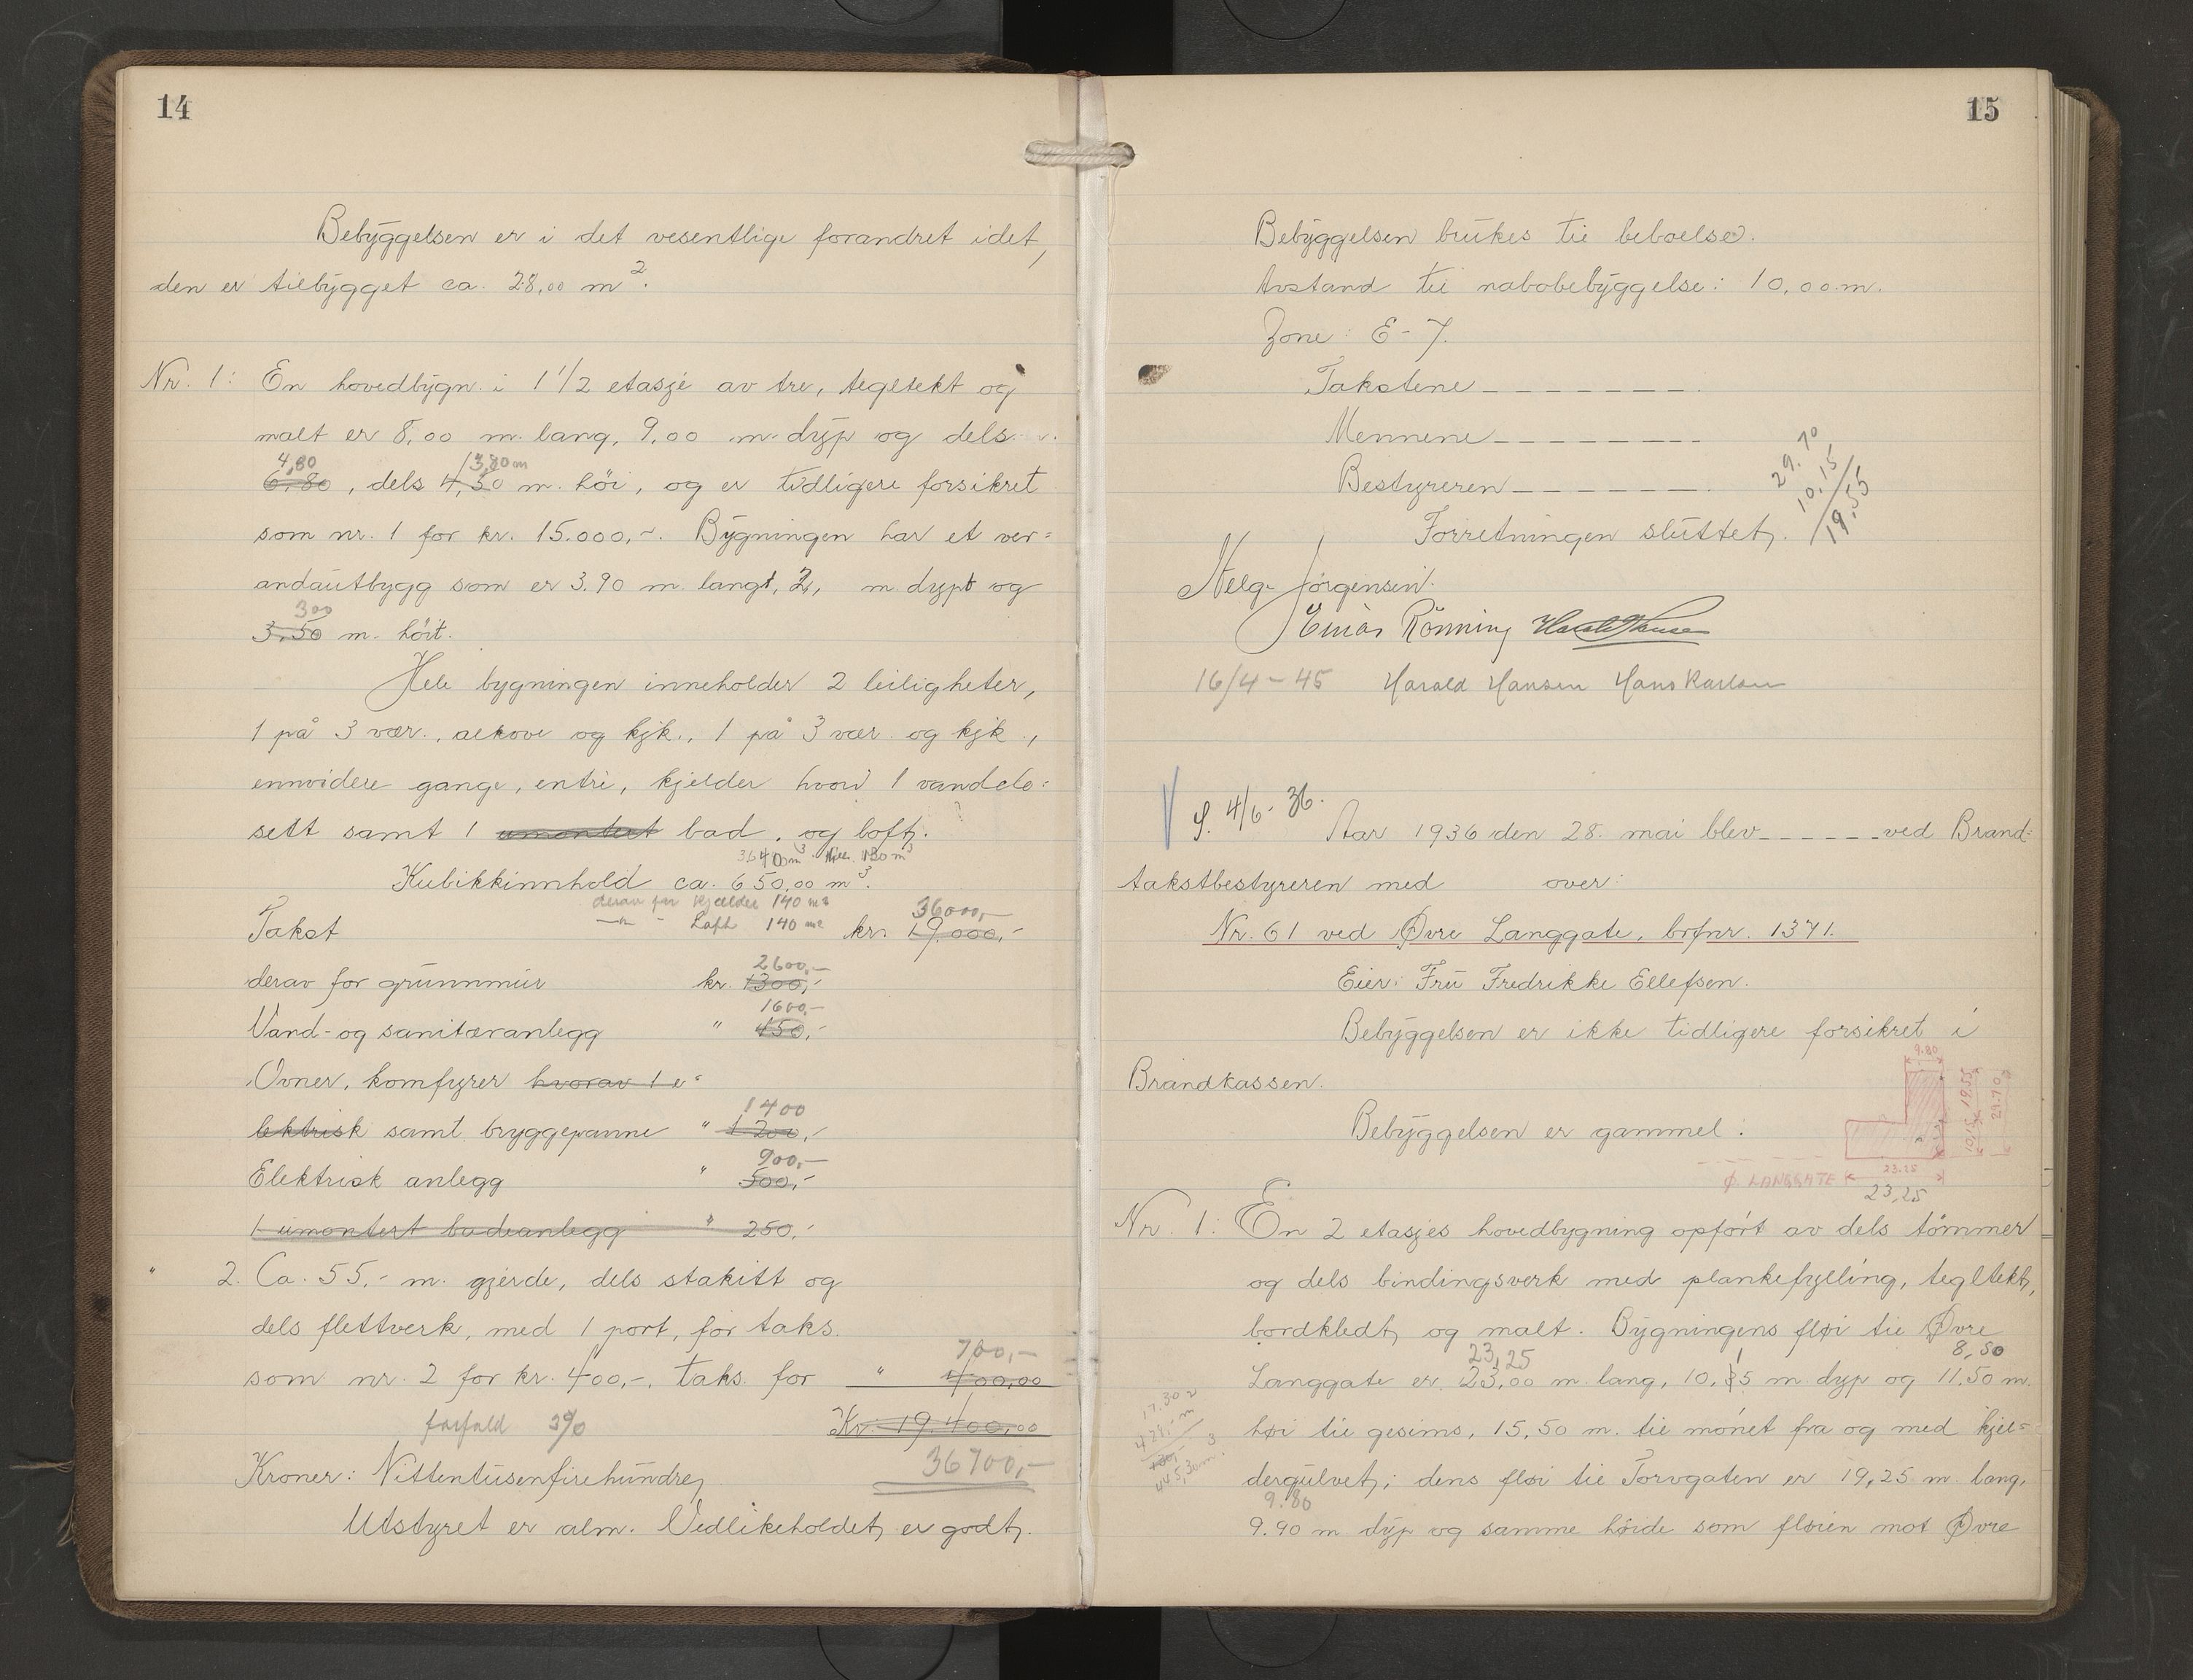 14
Bebyggelsen er i det vesentlige forandret idet,
den er tilbygget ca. 28,00 m².
Nr. 1: En hovedbygn. i 1 1/2 etasje av tre, tegltekt og
malt er 8,00 m. lang, 9,00 m. dyp og dels
4,80 3,80 m
6,80, dels 4,30 m. höi, og er tidligere forsikret
som nr. 1 for kr. 15.000,-. Bygningen har et ver=
andautbygg som er 3.90 m. langt, 2, m. dypt og
300
3,50 m. höit.
Hele bygningen inneholder 2 leiligheter,
1 på 3 vær., alkove og kjk., 1 på 3 vær. og kjk.,
ennvidere gange, entre, kjelder hvori 1 vandclo=
sett samt 1 umontert bad, og loft.
Kubikkinnhold ca. 650,00 m³.
derav for kjælder 140 m³
Loft 140 m²
36000,-
Takst kr. 19.000,-
2600,-
derav for grunnmur kr. 1300,-
1600,-
Vand- og sanitæranlegg " 450,-
Ovner, komfyrer hvorav 1 e=
1400
lektrisk samt bryggepanne " 1200,-
900,-
Elektrisk anlegg " 500,-
1 umontert badeanlegg " 250,-
" 2. Ca. 55,- m. gjerde, dels stakitt og
dels flettverk, med 1 port, før taks.
700,-
som nr. 2 for kr. 400,-, taks. for " 400,00
forfald 3% Kr. 19.400,00
36700,-
Kroner: Nittentusenfirehundre,
Utstyret er alm. Vedlikeholdet er godt.
15
Bebyggelsen brukes til beboelse.
Avstand til nabobebyggelse: 10,00 m.
Zone: E-7.
Takstene - - - - - - - -
Mennene - - - - - - - -
Bestyreren - - - - - - -
29.70
10,15
19,55
Forretningen sluttet.
Helg. Jörgensen.
Einar Rönning Harald Hansen
16/4-45 Harald Hansen Hans Karlsen
S. 4/6-36.
Aar 1936 den 28. mai blev - - - - - - ved Brand=
takstbestyreren med over:
Nr. 61 ved Øvre Langgate, brfnr. 1371.
Eier: Fru Fredrikke Ellefsen.
Bebyggelsen er ikke tidligere forsikret i
Brandkassen.
Bebyggelsen er gammel.
9.80
19.55
10,15
29.70
23.25
Ø. LANGGATE
23,25
Nr. 1: En 2 etasjes hovedbygning opført av dels tömmer
og dels bindingsverk med plankefylling, tegltekt,
bordkledt og malt. Bygningens fløi til Øvre
23,25 1 8,50
Langgate er 23,00 m. lang, 10,35 m. dyp og 11,50 m.
høi til gesims, 15,50 m. til mønet fra og med kjel=
dergulvet; dens fløi til Torvgaten er 19,25 m. lang,
9.80
9.90 m. dyp og samme høide som fløien mot Øvre